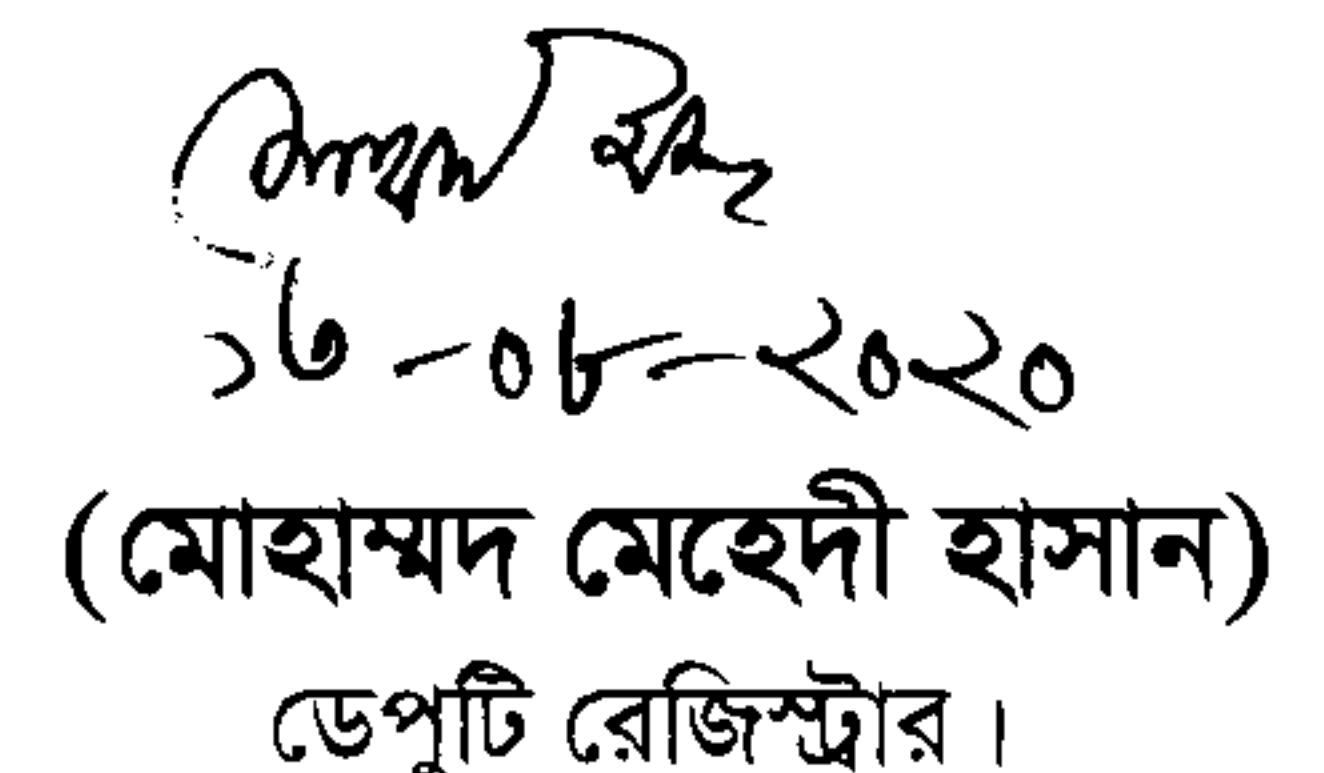 ১৩-০৮-২০২০
(মোহাম্মদ মেহেদী হাসান)
ডেপুটি রেজিস্ট্রার।